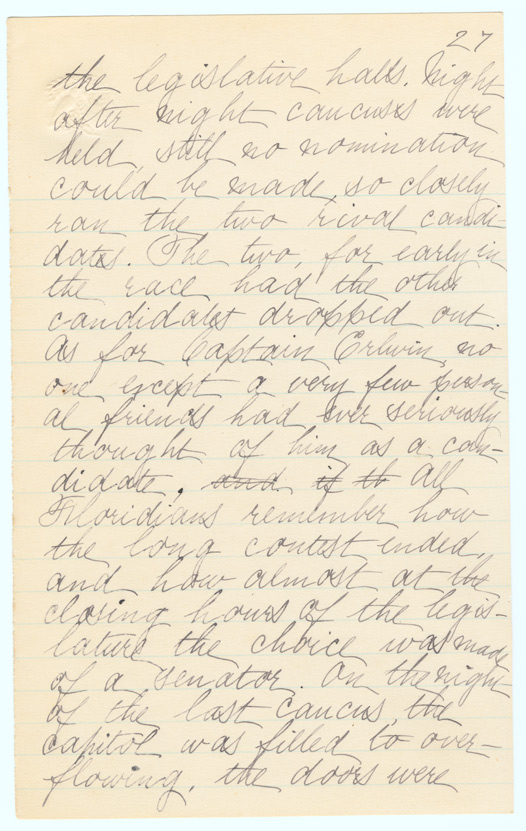 27
the legislative halls. Night
after night caucuses were
held, still no nomination
could be made, so closely
ran the two rival candi-
dates. The two, for early in
the race had the other
candidates dropped out.
As for Captain Erlwin, no
one except a very few person-
al friends had ever seriously
thought of him as a can-
didate, and if th All
Floridians remember how
the long contest ended,
and how almost at the
closing hours of the legis-
lature the choice was made
of a senator. On the night
of the last caucus, the
capitol was filled to over-
flowing, the doors were